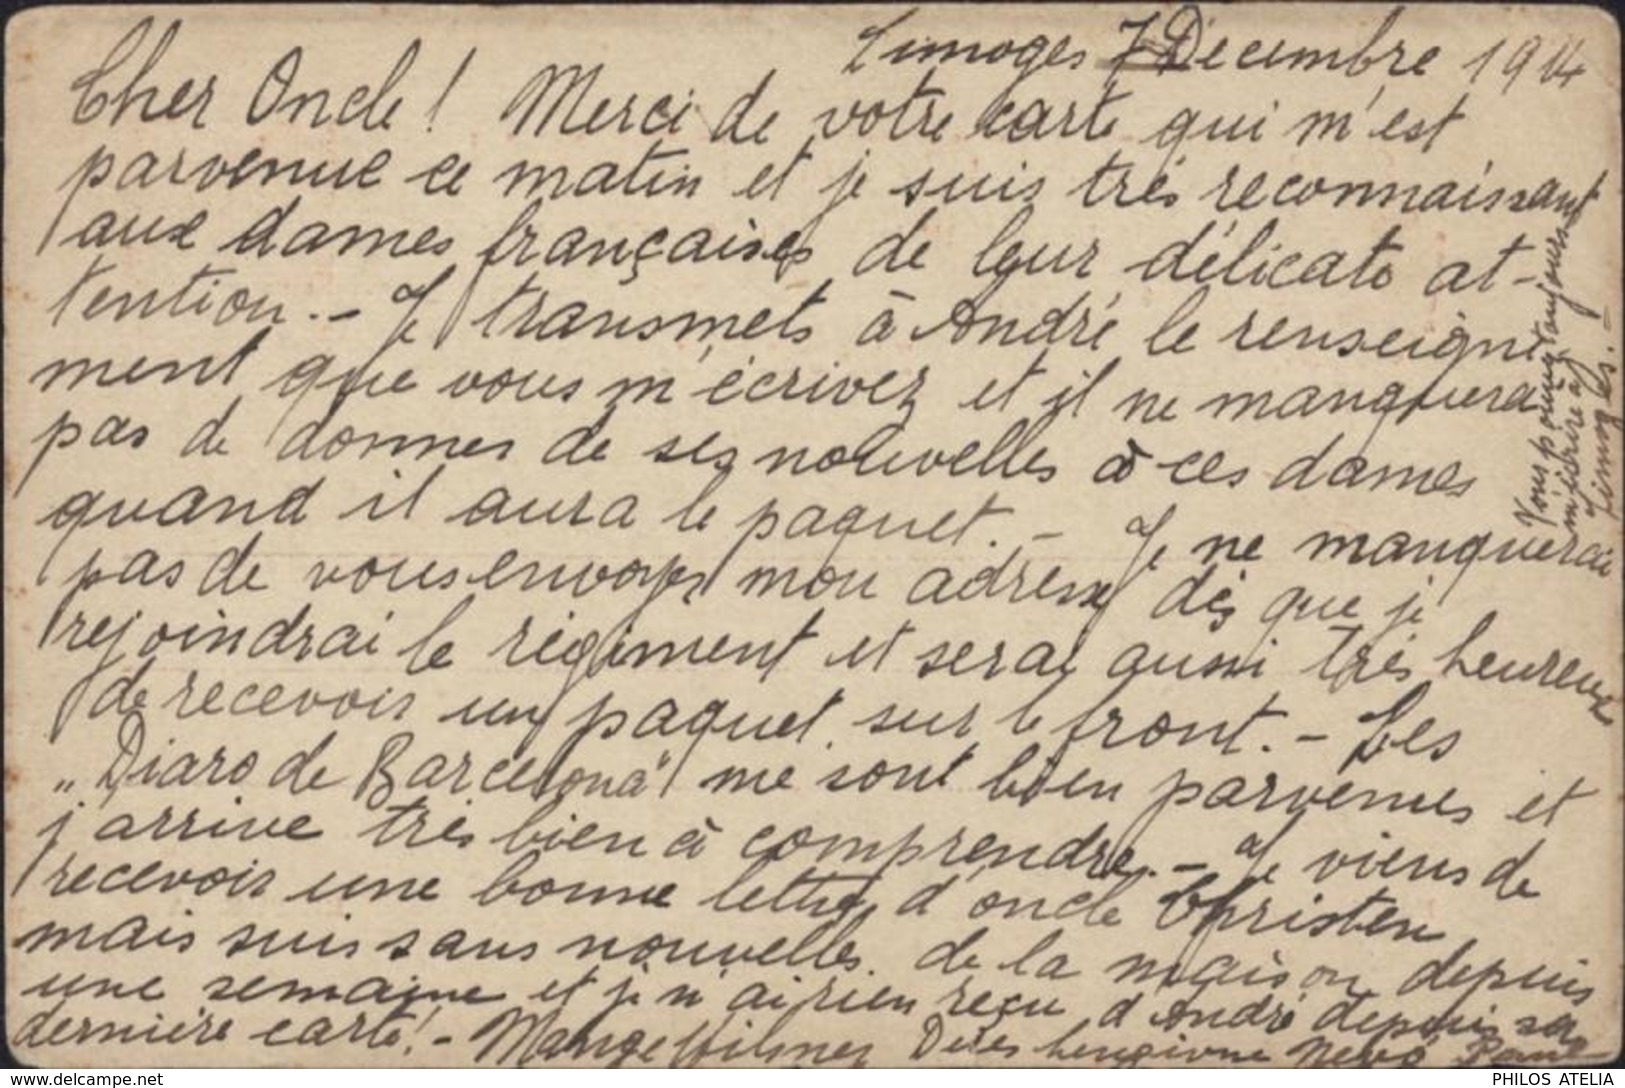 Limoges 7 Décembre 1914
Cher Oncle ! Merci de votre carte qui m'est
parvenue ce matin et je suis très reconnaissant
aux dames françaises de leur délicate at-
tention. - Je transmets à André le renseigne
ment que vous m'écrivez et il ne manquera
pas de donner de ses nouvelles à ces dames
quand il aura le paquet. - Je ne manquerai
pas de vous envoyer mon adresse dès que je
rejoindrai le régiment et serai aussi très heureux
de recevoir un paquet sur le front. - Les
„Diaro de Barcelona" me sont bien parvenus et
j'arrive très bien à comprendre. - Je viens de
recevoir une bonne lettre d'oncle Christen
mais suis sans nouvelles de la maison depuis
une semaine et je n'ai rien reçu d'André depuis sa
dernière carte ! -
Vous pouvez toujours
m'écrire à
Limoges. -
PHILOS ATELIA
www.delcampe.net